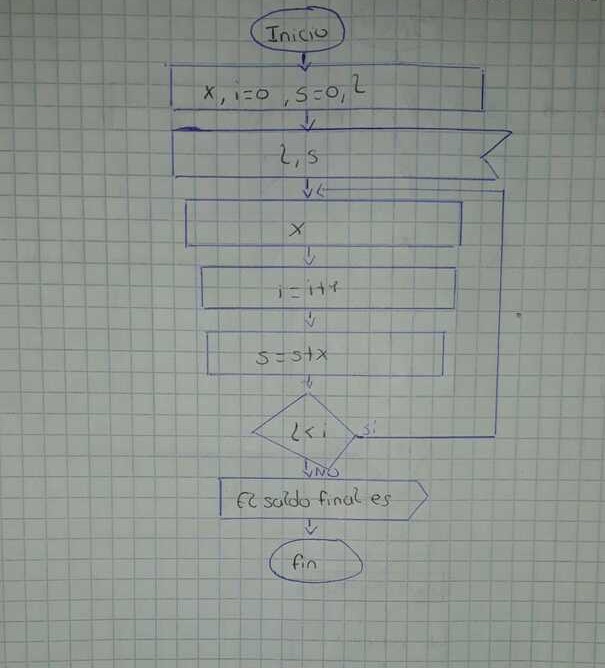 Inicio
x, i=0, s=0, l
l, s
x
i=i+1
s=s+x
l<i
si
NO
El saldo final es
fin